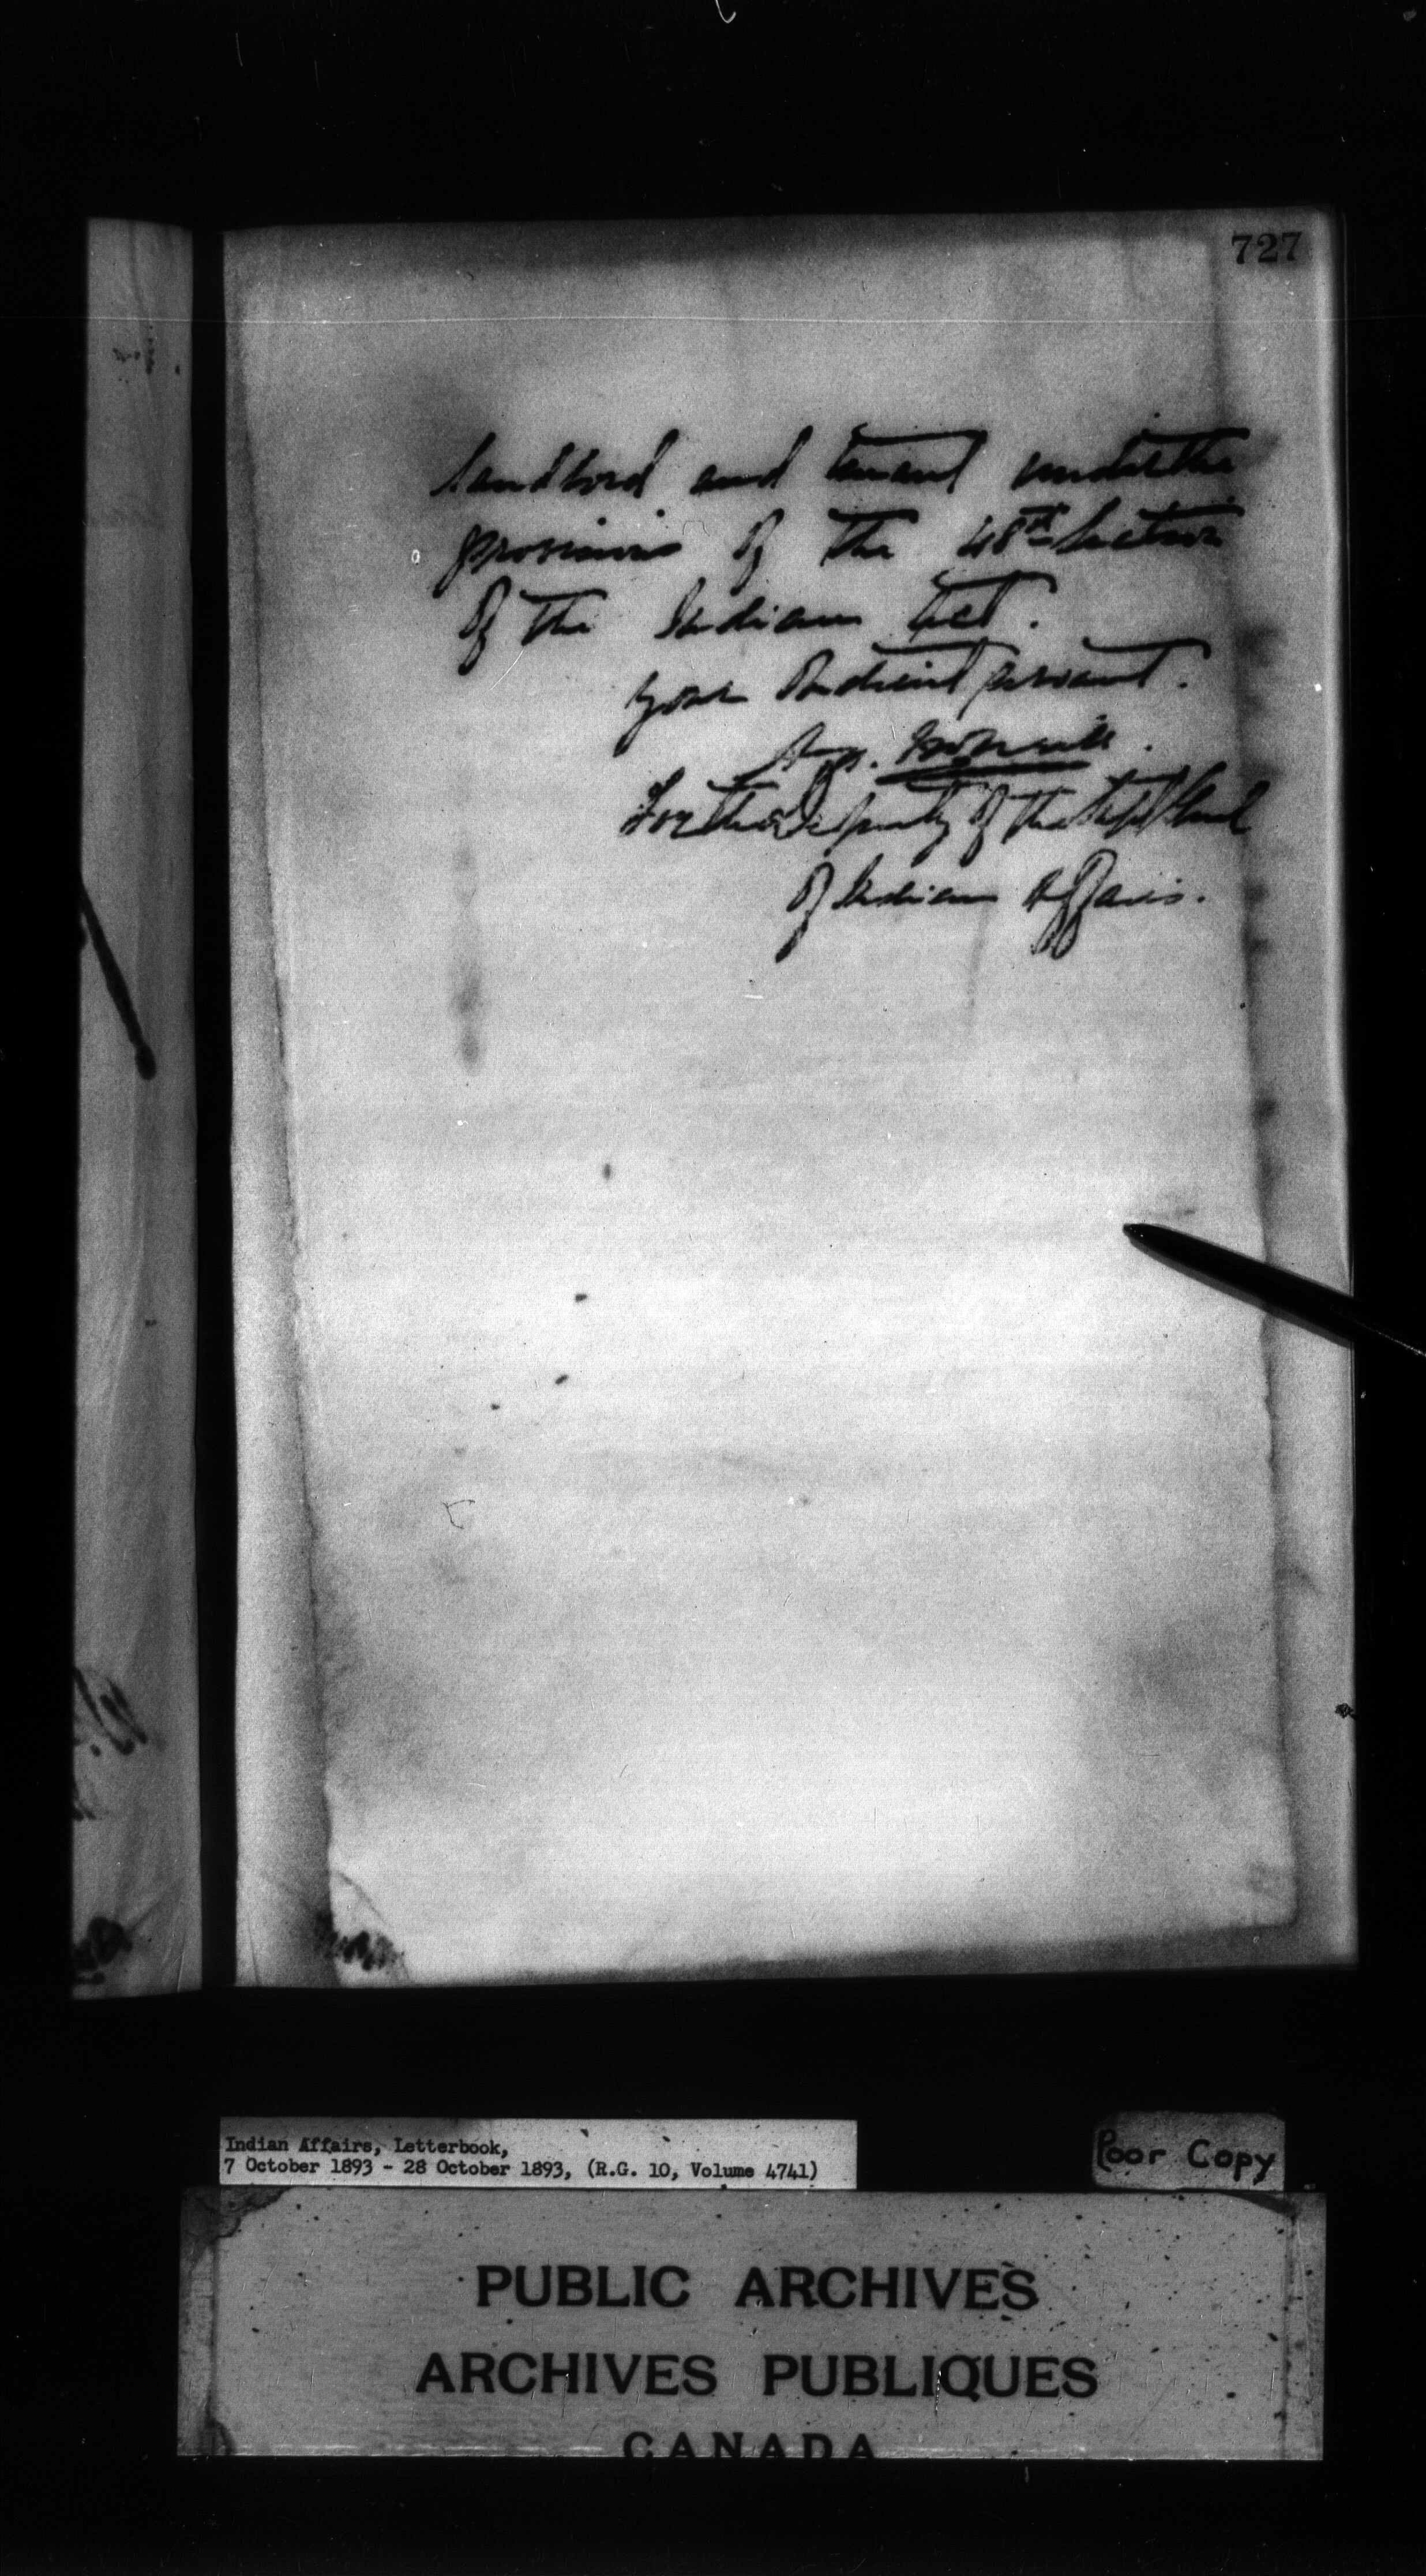 727
landlord and tenant under the
provisions of the 48th Section
of the Indian Act.
Your Obedient servant.
For the Deputy of the Supt Genl
of Indian Affairs.
Indian Affairs, Letterbook,
7 October 1893 - 28 October 1893, (R.G. 10, Volume 4741)
Poor Copy
PUBLIC ARCHIVES
ARCHIVES PUBLIQUES
CANADA